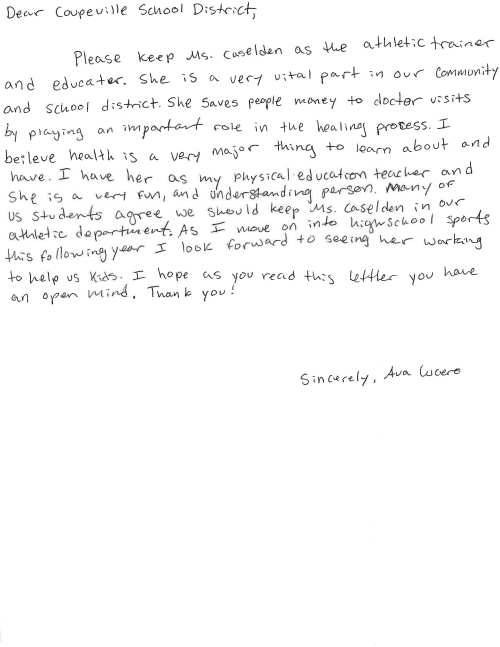 Dear Coupeville School District,
Please keep Ms. Caselden as the athletic trainer
and educater. She is a very vital part in our community
and school district. She saves people money to doctor visits
by playing an important role in the healing process. I
beileve health is a very major thing to learn about and
have. I have her as my physical education teacher and
She is a very fun, and understanding person. Many of
us students agree we should keep Ms. Caselden in our
athletic department. As I move on into highschool sports
this following year I look forward to seeing her working
to help us kids. I hope as you read this lettler you have
an open mind. Thank you!
Sincerely, Ava Lucero